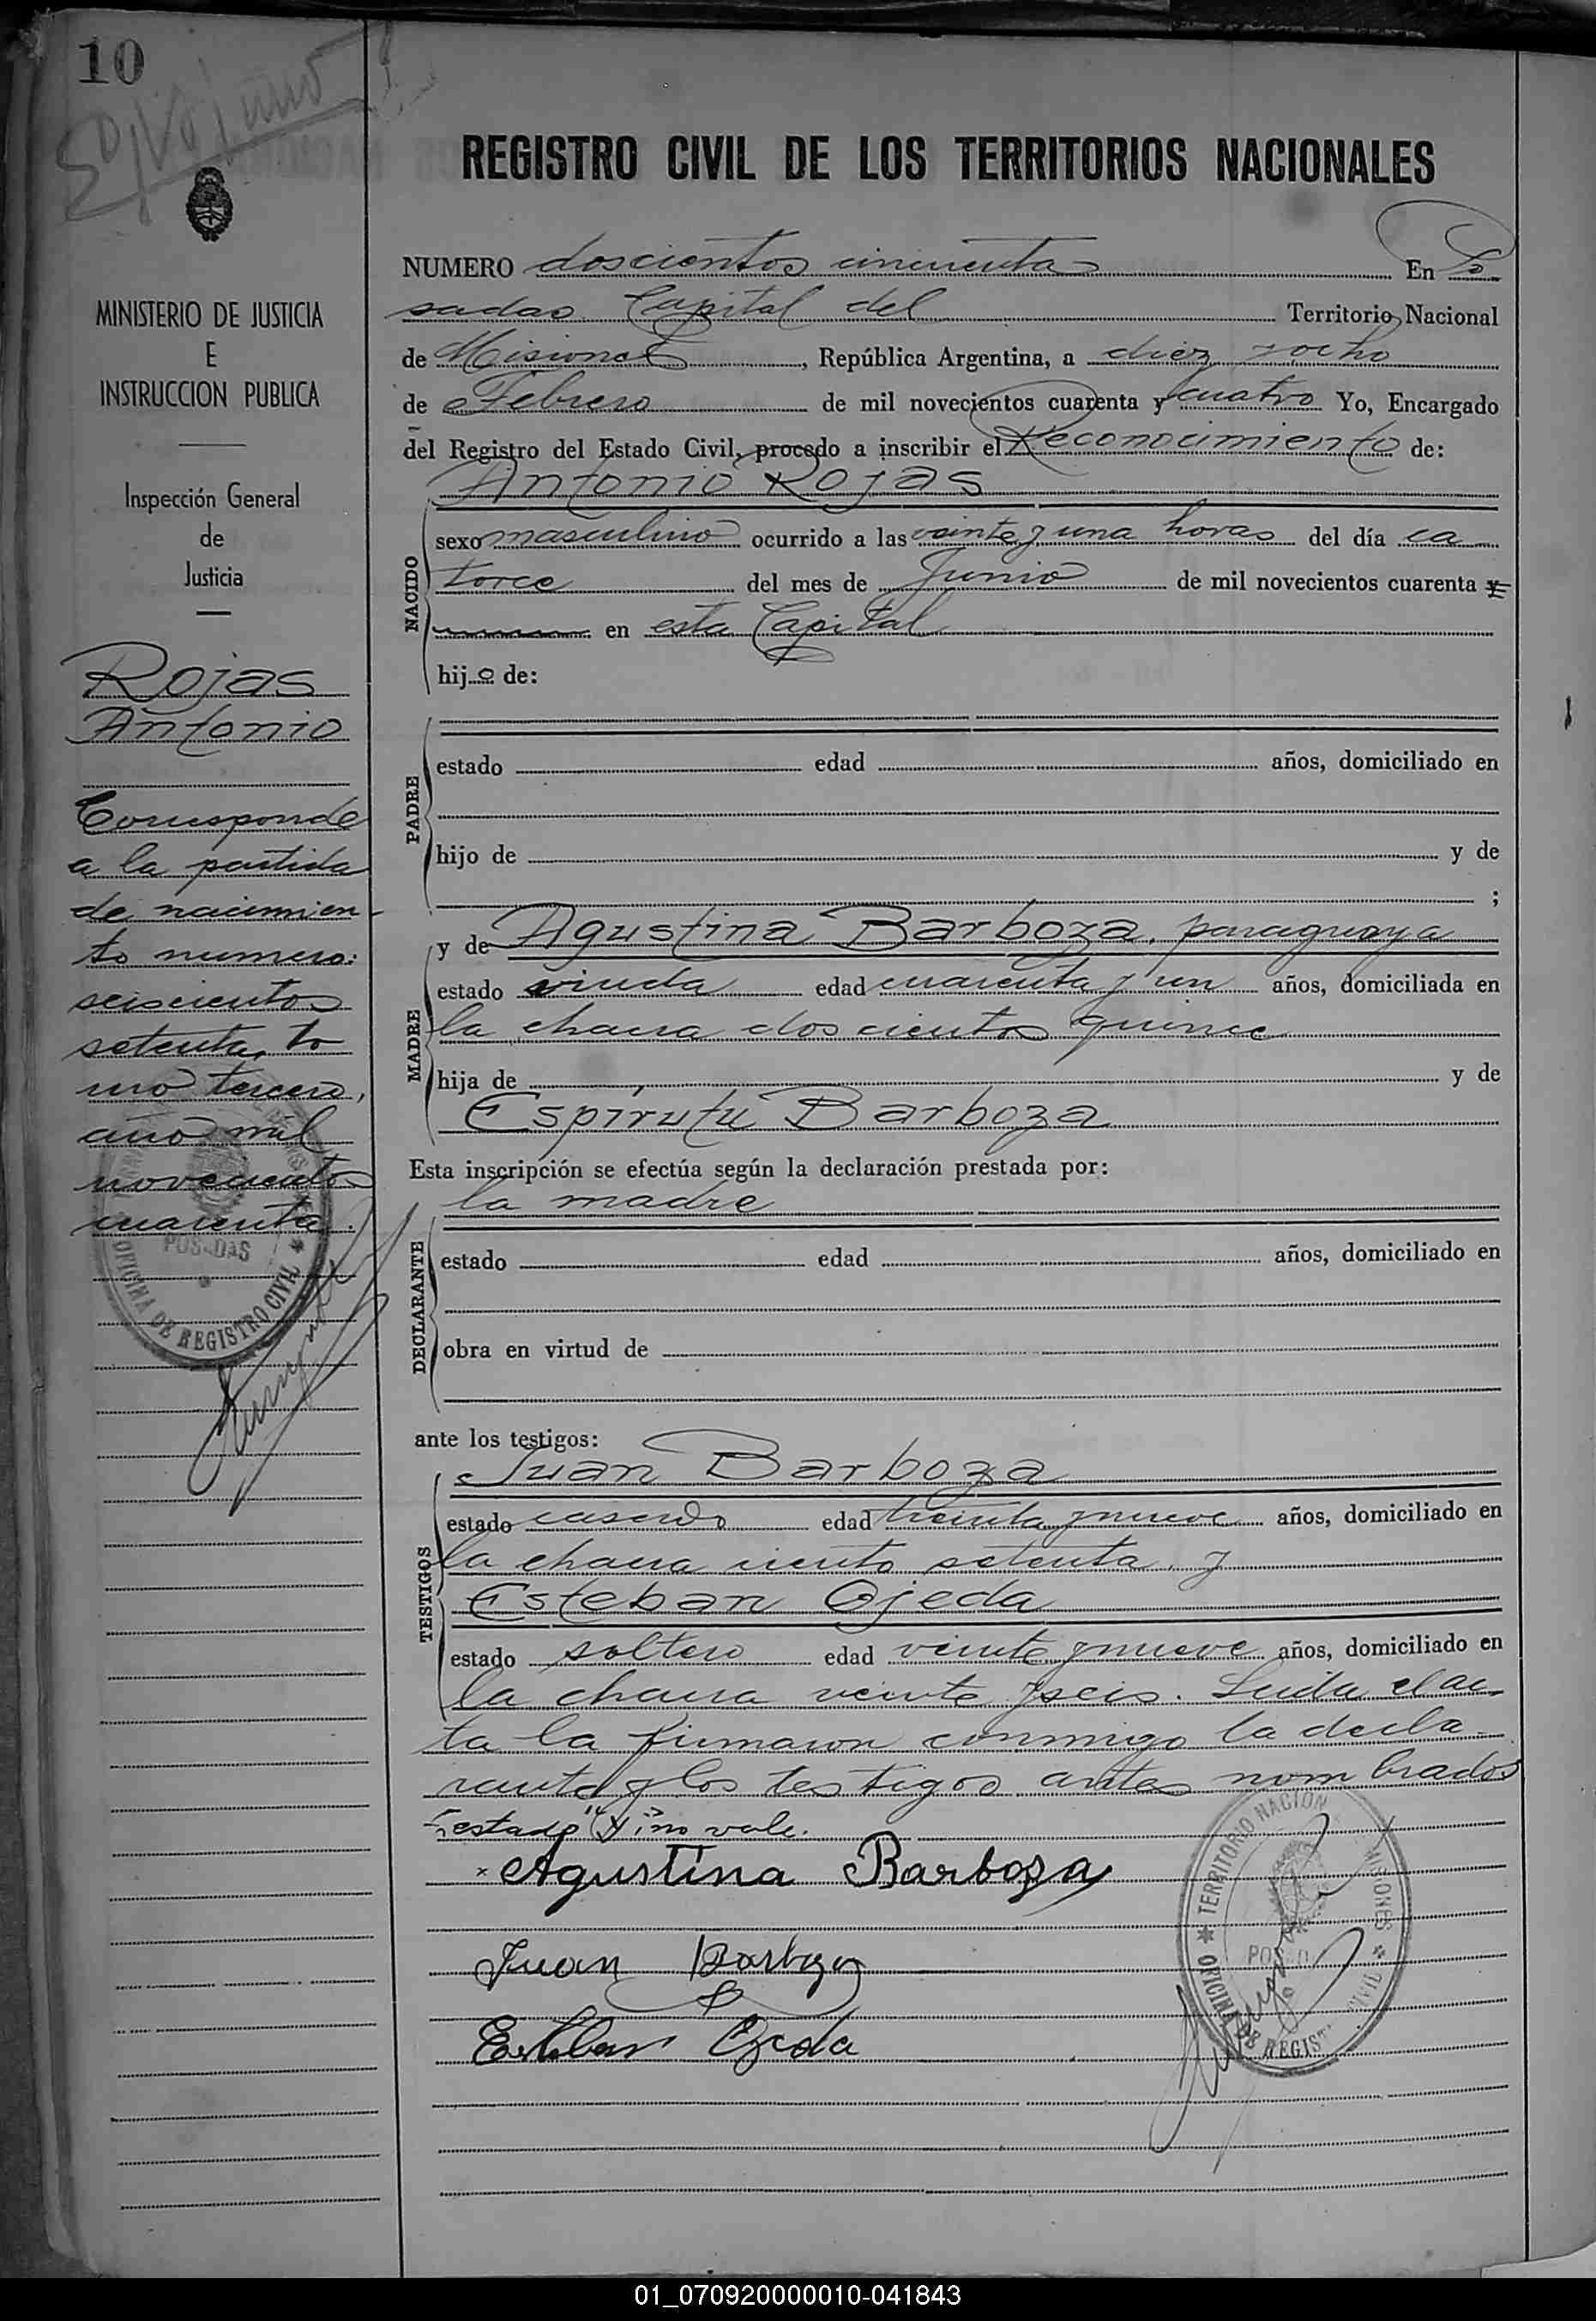 10
MINISTERIO DE JUSTICIA
E
INSTRUCCION PUBLICA
Inspección General
de
Justicia
Rojas
Antonio
Corresponde
a la partida
de nacimien-
to numero:
seiscientos
setenta, to
mo tercero,
año mil
novecientos
cuarenta.
POSADAS
OFICINA DE REGISTRO CIVIL
REGISTRO CIVIL DE LOS TERRITORIOS NACIONALES
NUMERO doscientos cincuenta En Po
sadas Capital del Territorio Nacional
de Misiones, República Argentina, a diez y ocho
de Febrero de mil novecientos cuarenta y cuatro Yo, Encargado
del Registro del Estado Civil, procedo a inscribir el Reconocimiento de:
Antonio Rojas
NACIDO
sexo masculino ocurrido a las veinte y una horas del día ca
torce del mes de Junio de mil novecientos cuarenta y
en esta Capital
hijo de:
PADRE
estado edad años, domiciliado en
hijo de y de
;
MADRE
y de Agustina Barboza, paraguaya
estado viuda edad cuarenta y un años, domiciliada en
la chacra doscientos quince
hija de y de
Espírutu Barboza
Esta inscripción se efectúa según la declaración prestada por:
la madre
DECLARANTE
estado edad años, domiciliado en
obra en virtud de
ante los testigos:
TESTIGOS
Juan Barboza
estado casado edad treinta y nueve años, domiciliado en
la chacra ciento setenta y
Esteban Ojeda
estado soltero edad veinte y nueve años, domiciliado en
la chacra veinte y seis. Leida el ac
ta la firmaron conmigo la decla
rante y los testigos antes nombrados
Testado "y": no vale.
Agustina Barboza
Juan Barboza
Esteban Ojeda
TERRITORIO NACION MISIONES
POSADAS
OFICINA DE REGIST CIVIL
01_070920000010-041843